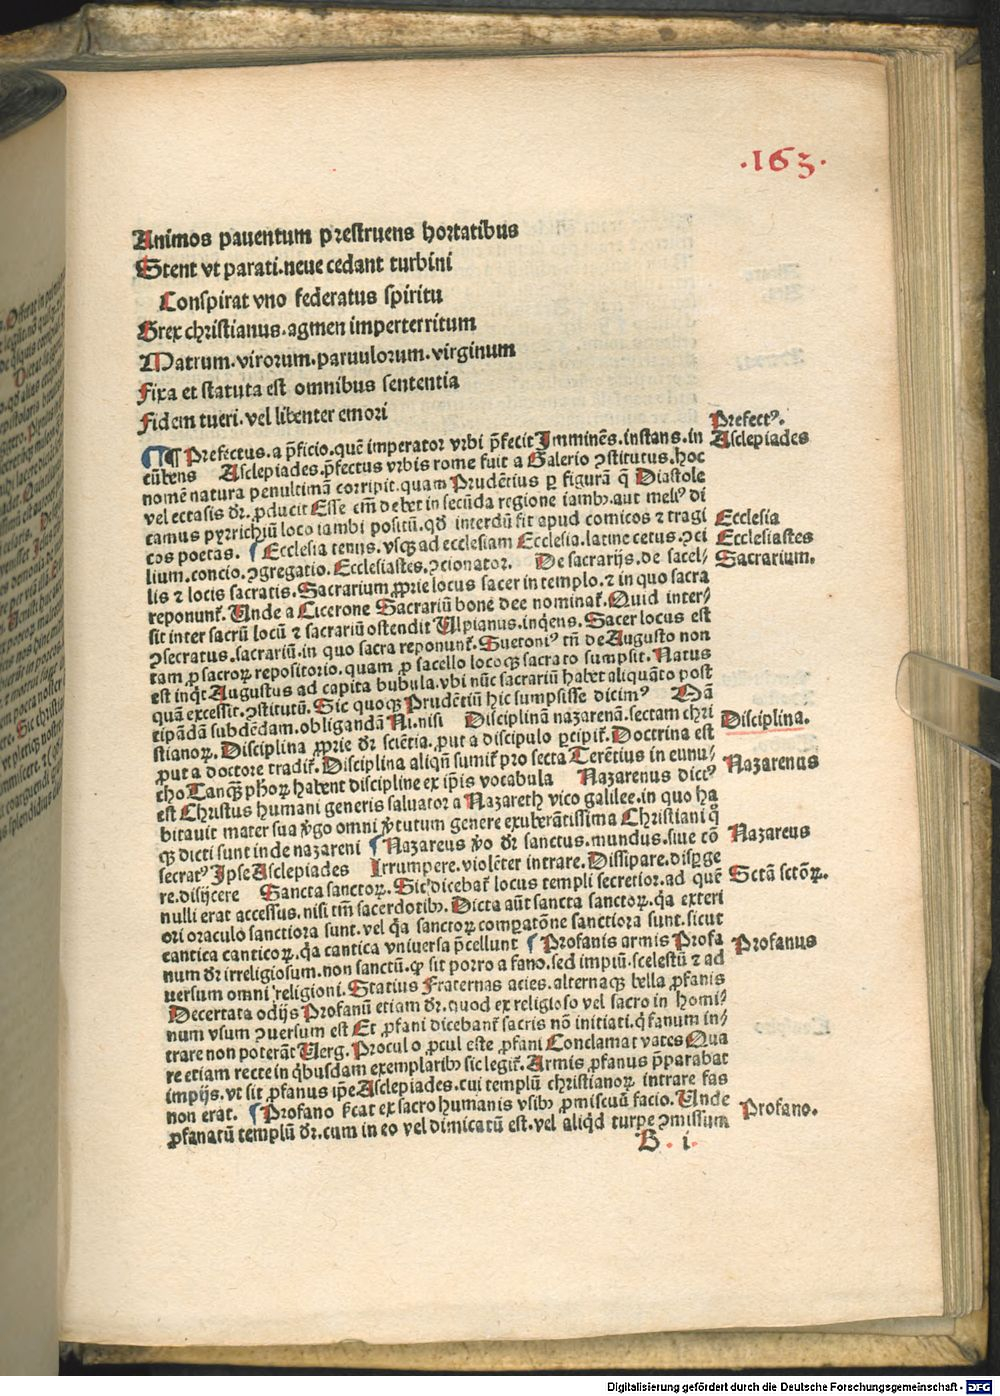 .163.
Animos pauentum prestruens hortatibus
Stent vt parati.neue cedant turbini
Conspirat vno federatus spiritu
Grex christianus.agmen imperterritum
Matrum.virorum.paruulorum.virginum
Fixa et statuta est omnibus sententia
Fidem tueri.vel libenter emori
Prefectꝰ.
¶ Prefectus.a p̄ficio.quē imperator vrbi p̄fecit Imminēs.instans.in
Asclepiades
cūbens Asclepiades.p̄fectus vrbis rome fuit a Galerio ꝯstitutus.hoc
nomē natura penultimā corripit.quam Prudētius ꝑ figurā q̄ Diastole
vel ectasis dr̄.ꝓducit Esse em̄ debet in secūda regione iambꝰ.aut meliꝰ di
camus pyrrichiū loco iambi positū.qd̄ interdū fit apud comicos ⁊ tragi
Ecclesia
cos poetas. ¶ Ecclesia tenus.vsqꝫ ad ecclesiam Ecclesia.latine cetus.ꝯci
Ecclesiastes
lium.concio.ꝯgregatio.Ecclesiastes.ꝯcionator. De sacrarijs.de sacel⸗
Sacrarium.
lis ⁊ locis sacratis.Sacrarium ꝓprie locus sacer in templo.⁊ in quo sacra
reponunt᷑.Unde a Cicerone Sacrariū bone dee nominat᷑.Quid inter⸗
sit inter sacrū locū ⁊ sacrariū ostendit Ulpianus.inqens.Sacer locus est
ꝯsecratus.sacrariū.in quo sacra reponunt᷑.Suetoniꝰ tn̄ de Augusto non
tam ꝓ sacroꝝ repositorio.quam ꝓ sacello locoqꝫ sacrato sumpsit.Natus
est inqt Augustus ad capita bubula.vbi nūc sacrariū habet aliquāto post
quā excessit.ꝯstitutū.Sic quoqꝫ Prudētiū hic sumpsisse dicimꝰ Mā
cipādā subdēdam.obligandā Ni.nisi Disciplinā nazarenā.sectam chri
Disciplina.
stianoꝝ.Disciplina ꝓprie dr̄ sciētia.ꝓut a discipulo ꝑcipit᷑.Doctrina est
ꝓut a doctore tradit᷑.Disciplina aliqn̄ sumit᷑ pro secta Terētius in eunu⸗
Nazarenus
cho Tanqꝫ phoꝝ habent discipline ex ip̄is vocabula Nazarenus dictꝰ
est Christus humani generis saluator a Nazareth vico galilee.in quo ha
bitauit mater sua v̓go omni v̓tutum genere exuberātissima Christiani q̊
qꝫ dicti sunt inde nazareni ¶ Nazareus v̓o dr̄ sanctus.mundus.siue cō
Nazareus
secratꝰ Ipse Asclepiades Irrumpere.violēter intrare.Dissipare.disꝑge
Sctā sctōꝝ..
re.disijcere Sancta sanctoꝝ.Sic dicebat᷑ locus templi secretior.ad quē
nulli erat accessus.nisi tm̄ sacerdotibꝫ.Dicta aūt sancta sanctoꝝ.qa exteri
ori oraculo sanctiora sunt.vel qa sanctoꝝ comꝑatōne sanctiora sunt.sicut
cantica canticoꝝ.qa cantica vniuersa p̄cellunt ¶ Profanis armis Profa
Profanus
num dr̄ irreligiosum.non sanctū.qꝫ sit porro a fano.sed impiū.scelestū ⁊ ad
uersum omni religioni.Statius Fraternas acies.alternaqꝫ bella ꝓfanis
Decertata odijs Profanū etiam dr̄.quod ex religioso vel sacro in homi⸗
num vsum ꝯuersum est Et ꝓfani dicebant᷑ sacris nō initiati.q fanum in⸗
trare non poterāt Uerg.Procul o ꝓcul este ꝓfani Conclamat vates Qua
re etiam recte in qbusdam exemplaribꝫ sic legit᷑.Armis ꝓfanus p̄parabat
impijs.vt sit ꝓfanus ip̄e Asclepiades.cui templū christianoꝝ intrare fas
non erat. ¶ Profano ficat ex sacro humanis vsibꝫ ꝓmiscuū facio.Unde
Profano.
ꝓfanatū templū dr̄.cum in eo vel dimicatū est.vel aliqd turpe ꝯmissum
B.i.
Digitalisierung gefördert durch die Deutsche Forschungsgemeinschaft - DFG